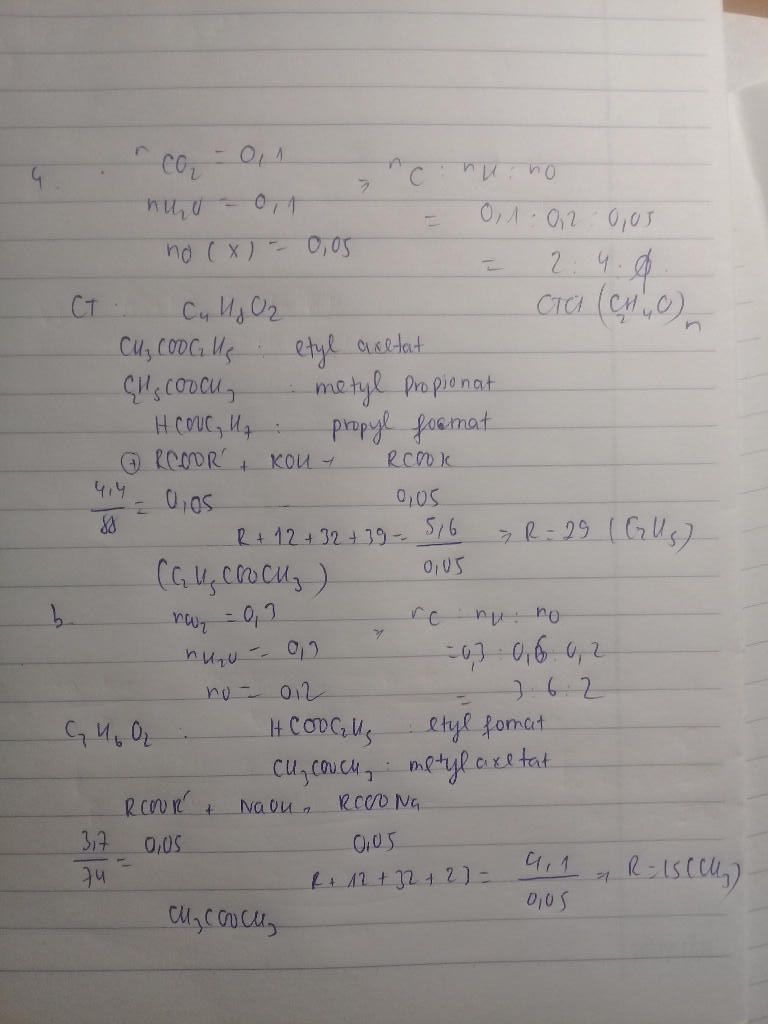 4. nCO2 = 0,1 => nC : nH : nO
nH2O = 0,1 = 0,1 : 0,2 : 0,05
nO (X) = 0,05 = 2 : 4 : 1
CT : C4H8O2 CTĐG (C2H4O)n
CH3COOC2H5 : etyl axetat
C2H5COOCH3 : metyl propionat
HCOOC3H7 : propyl foemat
+ RCOOR' + KOH → RCOOK
4,4/88 = 0,05 0,05
R + 12 + 32 + 39 = 5,6/0,05 => R = 29 (C2H5)
(C2H5COOCH3)
b. nCO2 = 0,3 => nC : nH : nO
nH2O = 0,3 = 0,3 : 0,6 : 0,2
nO = 0,2 = 3 : 6 : 2
C3H6O2 : HCOOC2H5 : etyl fomat
CH3COOCH3 : metyl axetat
RCOOR' + NaOH → RCOONa
3,7/74 = 0,05 0,05
R + 12 + 32 + 23 = 4,1/0,05 => R = 15 (CH3)
CH3COOCH3